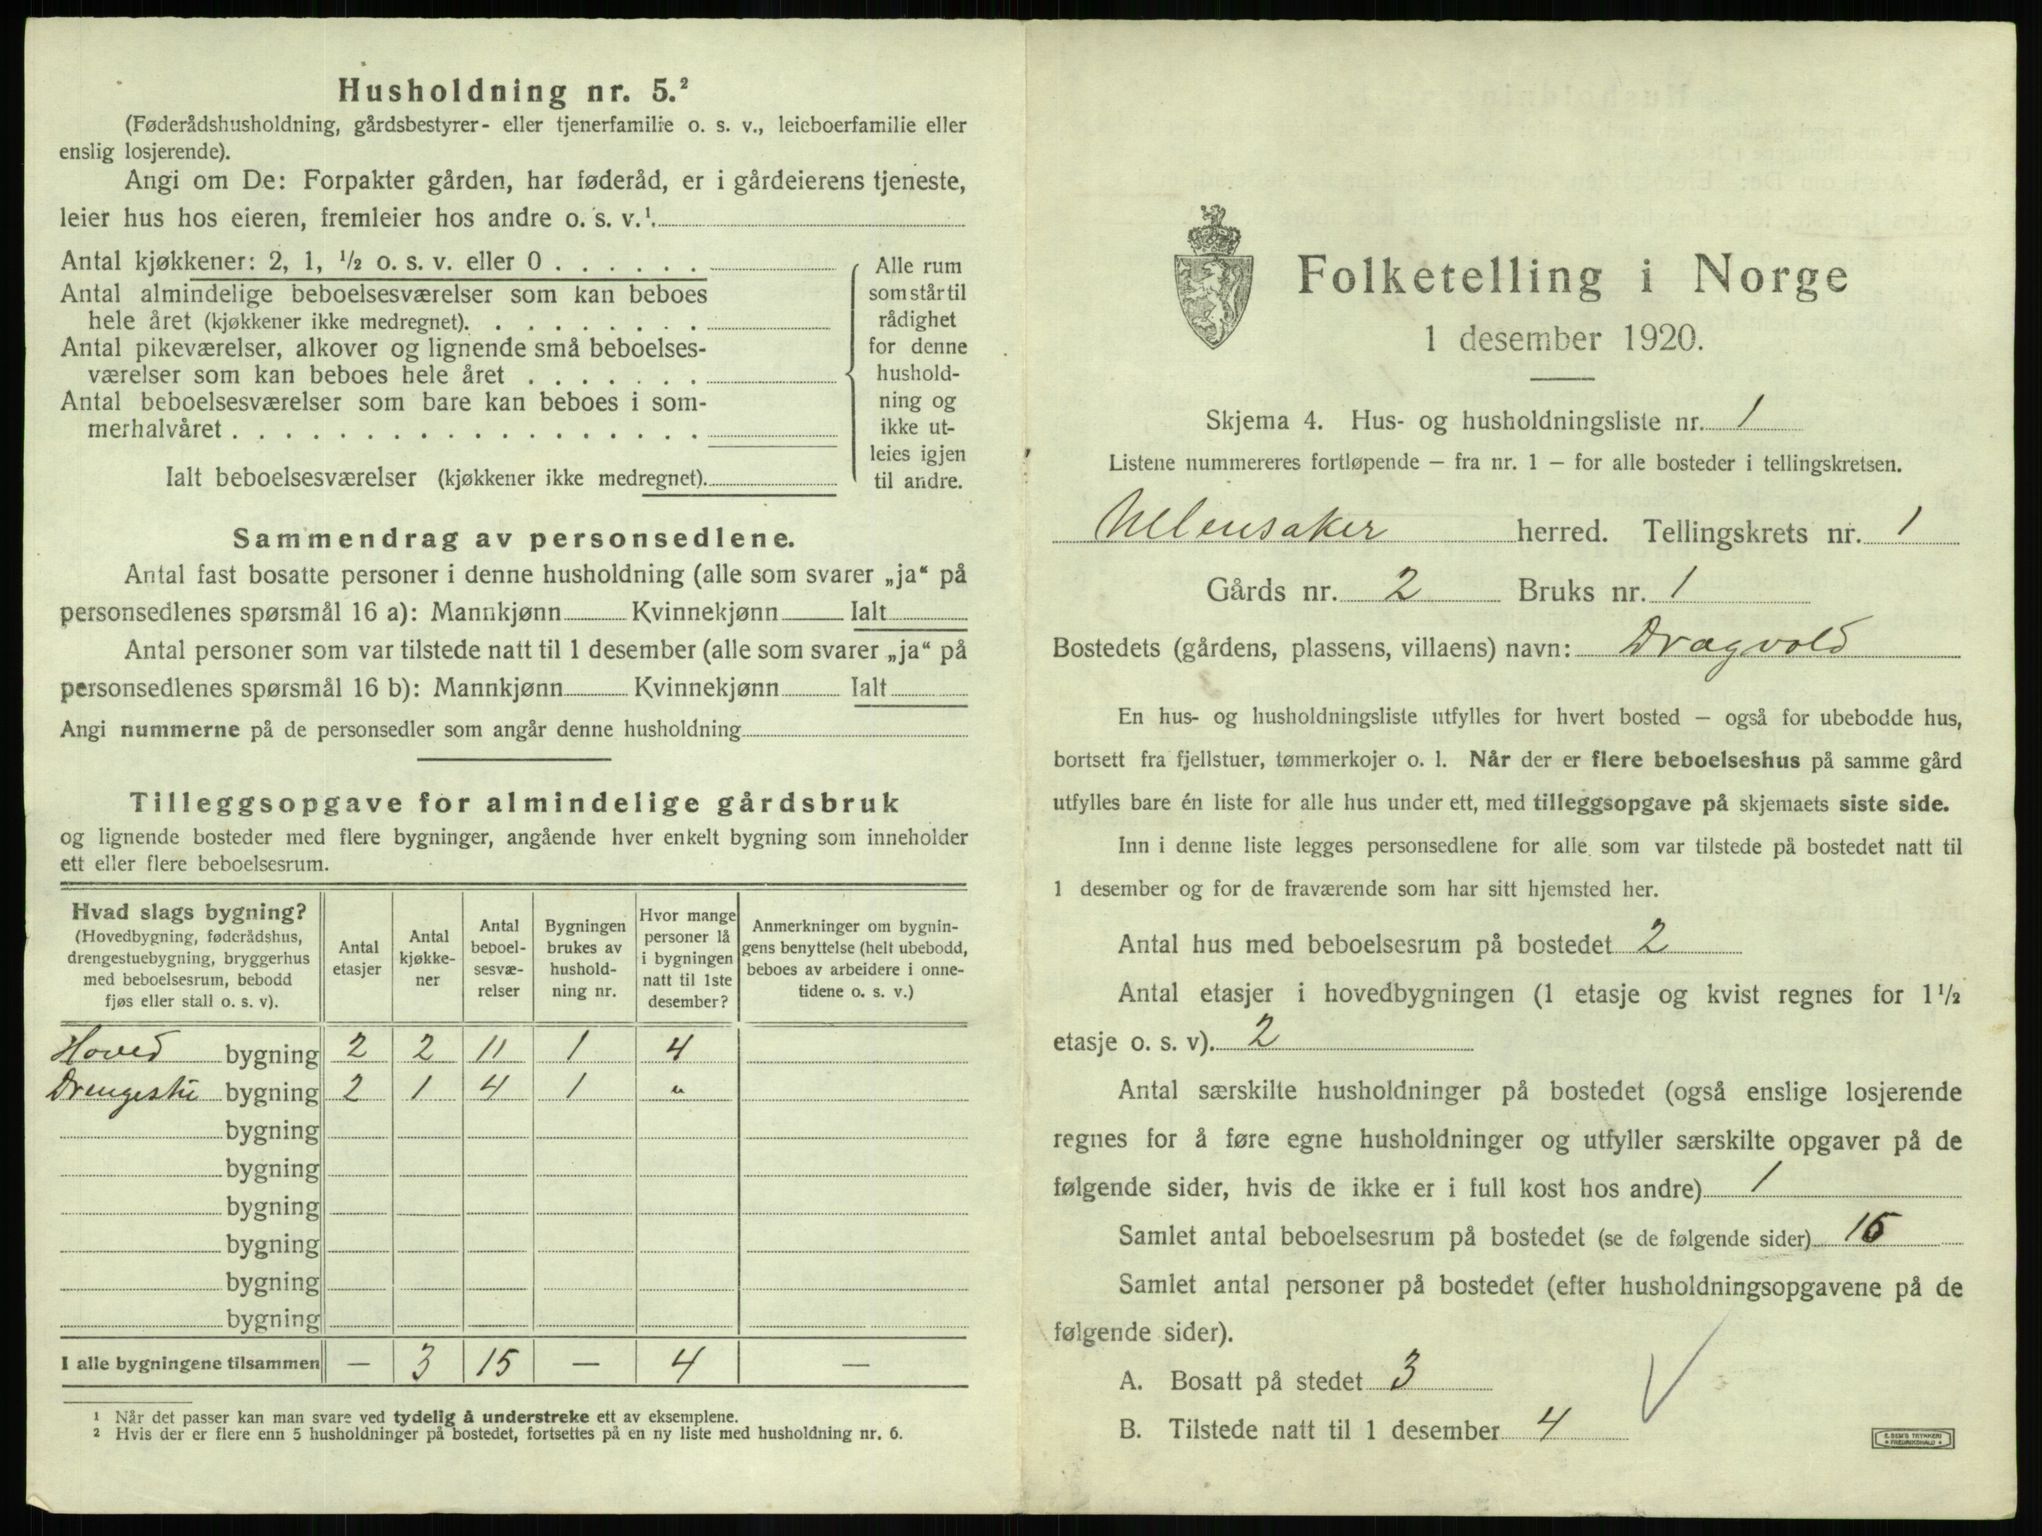 Husholdning nr. 5.²
(Føderådshusholdning, gårdsbestyrer- eller tjenerfamilie o. s. v., leieboerfamilie eller
enslig losjerende).
Angi om De: Forpakter gården, har føderåd, er i gårdeierens tjeneste,
leier hus hos eieren, fremleier hos andre o. s. v.¹.
Antal kjøkkener: 2, 1, ½ o. s. v. eller 0 . . . . . .
Antal almindelige beboelsesværelser som kan beboes
hele året (kjøkkener ikke medregnet). . . . . . . . .
Antal pikeværelser, alkover og lignende små beboelses-
værelser som kan beboes hele året . . . . . . .
Antal beboelsesværelser som bare kan beboes i som-
merhalvåret . . . . . . . . . . . . . . . . . .
Ialt beboelsesværelser (kjøkkener ikke medregnet).
Alle rum
som står til
rådighet
for denne
hushold-
ning og
ikke ut-
leies igjen
til andre.
Sammendrag av personsedlene.
Antal fast bosatte personer i denne husholdning (alle som svarer „ja“ på
personsedlenes spørsmål 16 a): Mannkjønn Kvinnekjønn Ialt
Antal personer som var tilstede natt til 1 desember (alle som svarer „ja“ på
personsedlenes spørsmål 16 b): Mannkjønn Kvinnekjønn Ialt
Angi nummerne på de personsedler som angår denne husholdning
Tilleggsopgave for almindelige gårdsbruk
og lignende bosteder med flere bygninger, angående hver enkelt bygning som inneholder
ett eller flere beboelsesrum.
Hvad slags bygning?
(Hovedbygning, føderådshus,
drengestuebygning, bryggerhus
med beboelsesrum, bebodd
fjøs eller stall o. s. v).
Antal
etasjer
Antal
kjøkke-
ner
Antal
beboel-
sesvæ-
relser
Bygningen
brukes av
hushold-
ning nr.
Hvor mange
personer lå
i bygningen
natt til 1ste
desember?
Anmerkninger om bygnin-
gens benyttelse (helt ubebodd,
beboes av arbeidere i onne-
tidene o. s. v.)
Hoved bygning 2 2 11 1 4
Drengestu bygning 2 1 4 1 "
bygning
bygning
bygning
bygning
bygning
bygning
I alle bygningene tilsammen — 3 15 — 4 —
¹ Når det passer kan man svare ved tydelig å understreke ett av eksemplene.
² Hvis der er flere enn 5 husholdninger på bostedet, fortsettes på en ny liste med husholdning nr. 6.
Folketelling i Norge
1 desember 1920.
Skjema 4. Hus- og husholdningsliste nr. 1
Listene nummereres fortløpende – fra nr. 1 – for alle bosteder i tellingskretsen.
Ullensaker herred. Tellingskrets nr. 1
Gårds nr. 2 Bruks nr. 1
Bostedets (gårdens, plassens, villaens) navn: Dragvold
En hus- og husholdningsliste utfylles for hvert bosted – også for ubebodde hus,
bortsett fra fjellstuer, tømmerkojer o. l. Når der er flere beboelseshus på samme gård
utfylles bare én liste for alle hus under ett, med tilleggsopgave på skjemaets siste side.
Inn i denne liste legges personsedlene for alle som var tilstede på bostedet natt til
1 desember og for de fraværende som har sitt hjemsted her.
Antal hus med beboelsesrum på bostedet 2
Antal etasjer i hovedbygningen (1 etasje og kvist regnes for 1½
etasje o. s. v). 2
Antal særskilte husholdninger på bostedet (også enslige losjerende
regnes for å føre egne husholdninger og utfyller særskilte opgaver på de
følgende sider, hvis de ikke er i full kost hos andre) 1
Samlet antal beboelsesrum på bostedet (se de følgende sider) 15
Samlet antal personer på bostedet (efter husholdningsopgavene på de
følgende sider).
A. Bosatt på stedet 3
B. Tilstede natt til 1 desember 4
E. SEM'S TRYKKERI
FREDRIKSHALD